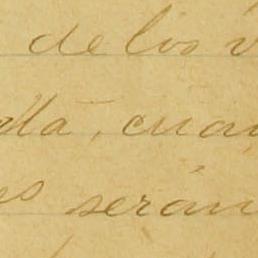 de los v
alla, cuan
es serán